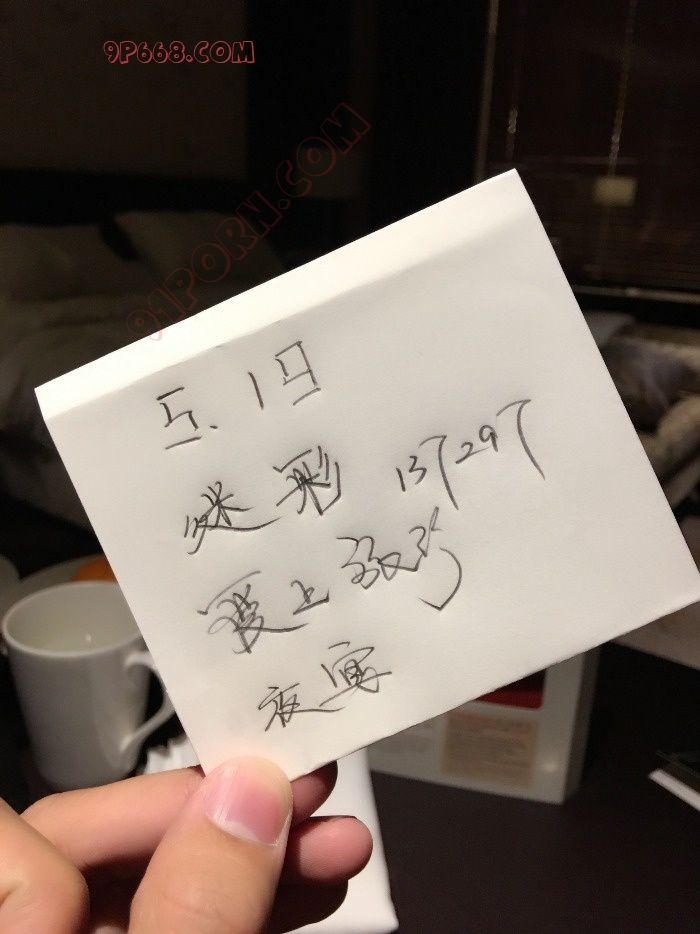 9P668.COM
91PORN.COM
5.19
137297
爱上
夜宴